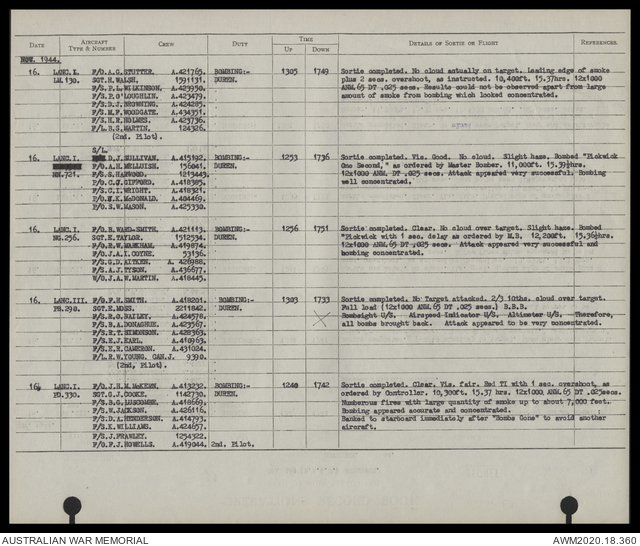 DATE AIRCRAFT TYPE & NUMBER CREW DUTY TIME UP DOWN DETAILS OF SORTIE OR FLIGHT REFERENCES
NOV. 1944.
16. LANC.I. P/O.A.G.STUTTER. A.421765. BOMBING:- 1305 1749 Sortie completed. No cloud actually on target. leading edge of smoke
LM.130. SGT.H.WALSH. 1591131. DUREN. plus 2 secs. overshoot, as instructed. 10,400ft. 15.37hrs. 12x1000
F/S.P.L.WILKINSON. A.423950. ANM.65 DT .025 secs. Results could not be observed apart from large
F/S.P.O'LOUGHLIN. A.423479. amount of smoke from bombing which looked concentrated.
F/S.D.J.BROWNING. A.424285.
F/S.M.F.WOODGATE. A.434351.
F/S.H.R.HOLMES. A.423736.
F/L.B.S.MARTIN. 124326.
(2nd. Pilot).
S/L.
16. LANC.I. D.J.SULLIVAN. A.415192. BOMBING:- 1253 1736 Sortie completed. Vis. Good. No cloud. Slight haze. Bombed "Pickwick
F/O.A.H.MELLUISH. 156041. DUREN. One Second," as ordered by Master Bomber. 11,000ft. 15.39½hrs.
NN.721. F/S.S.HARWOOD. 1213443. 12x1000 ANM. DT .025 secs. Attack appeared very successful. Bombing
F/O.C.J.GIFFORD. A.418385. well concentrated.
F/S.C.I.WRIGHT. A.418321.
F/O.K.McDONALD. A.404469.
F/O.N.W.MASON. A.425330.
16. LANC.I. F/O.B.WARD-SMITH. A.421113. BOMBING:- 1256 1751 Sortie completed. Clear. No cloud over target. Slight haze. Bombed
NG.256. SGT.K.TAYLOR. 1512534. DUREN. "Pickwick with 1 sec. delay as ordered by M.B. 12,200ft. 15.36½hrs.
F/O.B.W.MARKHAM. A.419874. 12x1000 ANM.65 DT .025 secs. Attack appeared very successful and
F/O.J.A.I.COYNE. 53136. bombing concentrated.
F/S.G.D.AITKEN. A.426988.
F/S.A.J.TYSON. A.436677.
W/O.J.A.W.MARTIN. A.418445.
16. LANC.III. F/O.F.H.SMITH. A.418201. BOMBING:- 1303 1733 Sortie completed. No Target attacked. 2/3 10ths. cloud over target.
PB.290. SGT.E.MOSS. 2211842. DUREN. Full load (12x1000 ANM.65 DT .025 secs.) B.B.B.
F/S.R.O.BAILEY. A.424578. Bombsight U/S. Airspeed Indicator U/S. Altimeter U/S. Therefore,
F/S.B.A.DONAGHUE. A.423567. all bombs brought back. Attack appeared to be very concentrated.
F/S.E.T.SIMONSON. A.428363.
F/S.H.J.EARL. A.410963.
F/S.E.R.CAMERON. A.431024.
F/L.R.W.YOUNG. CAN.J. 9390.
(2nd, Pilot).
16. LANC.I. F/O.J.H.M.McKERN. A.413232. BOMBING:- 1240 1742 Sortie completed. Clear. Vis. fair. Red TI with 1 sec. overshoot, as
PD.330. SGT.G.J.COOKE. 1142730. DUREN. ordered by Controller. 10,300ft. 15.37 hrs. 12x1000 ANM.65 DT .025secs.
F/S.B.G.LUSCOMBE. A.418669. Numberous fires with large quantity of smoke up to about 7,000 feet.
F/S.W.JACKSON. A.426116. Bombing appeared accurate and concentrated.
F/S.D.A.HENDERSON. A.414793. Banked to starboard immediately after "Bombs Gone" to avoid another
F/S.K.WILLIAMS. A.424657. aircraft.
F/S.J.FRAWLEY. 1254322.
F/O.F.J.HOWELLS. A.419044. 2nd. Pilot.
AUSTRALIAN WAR MEMORIAL AWM2020.18.360